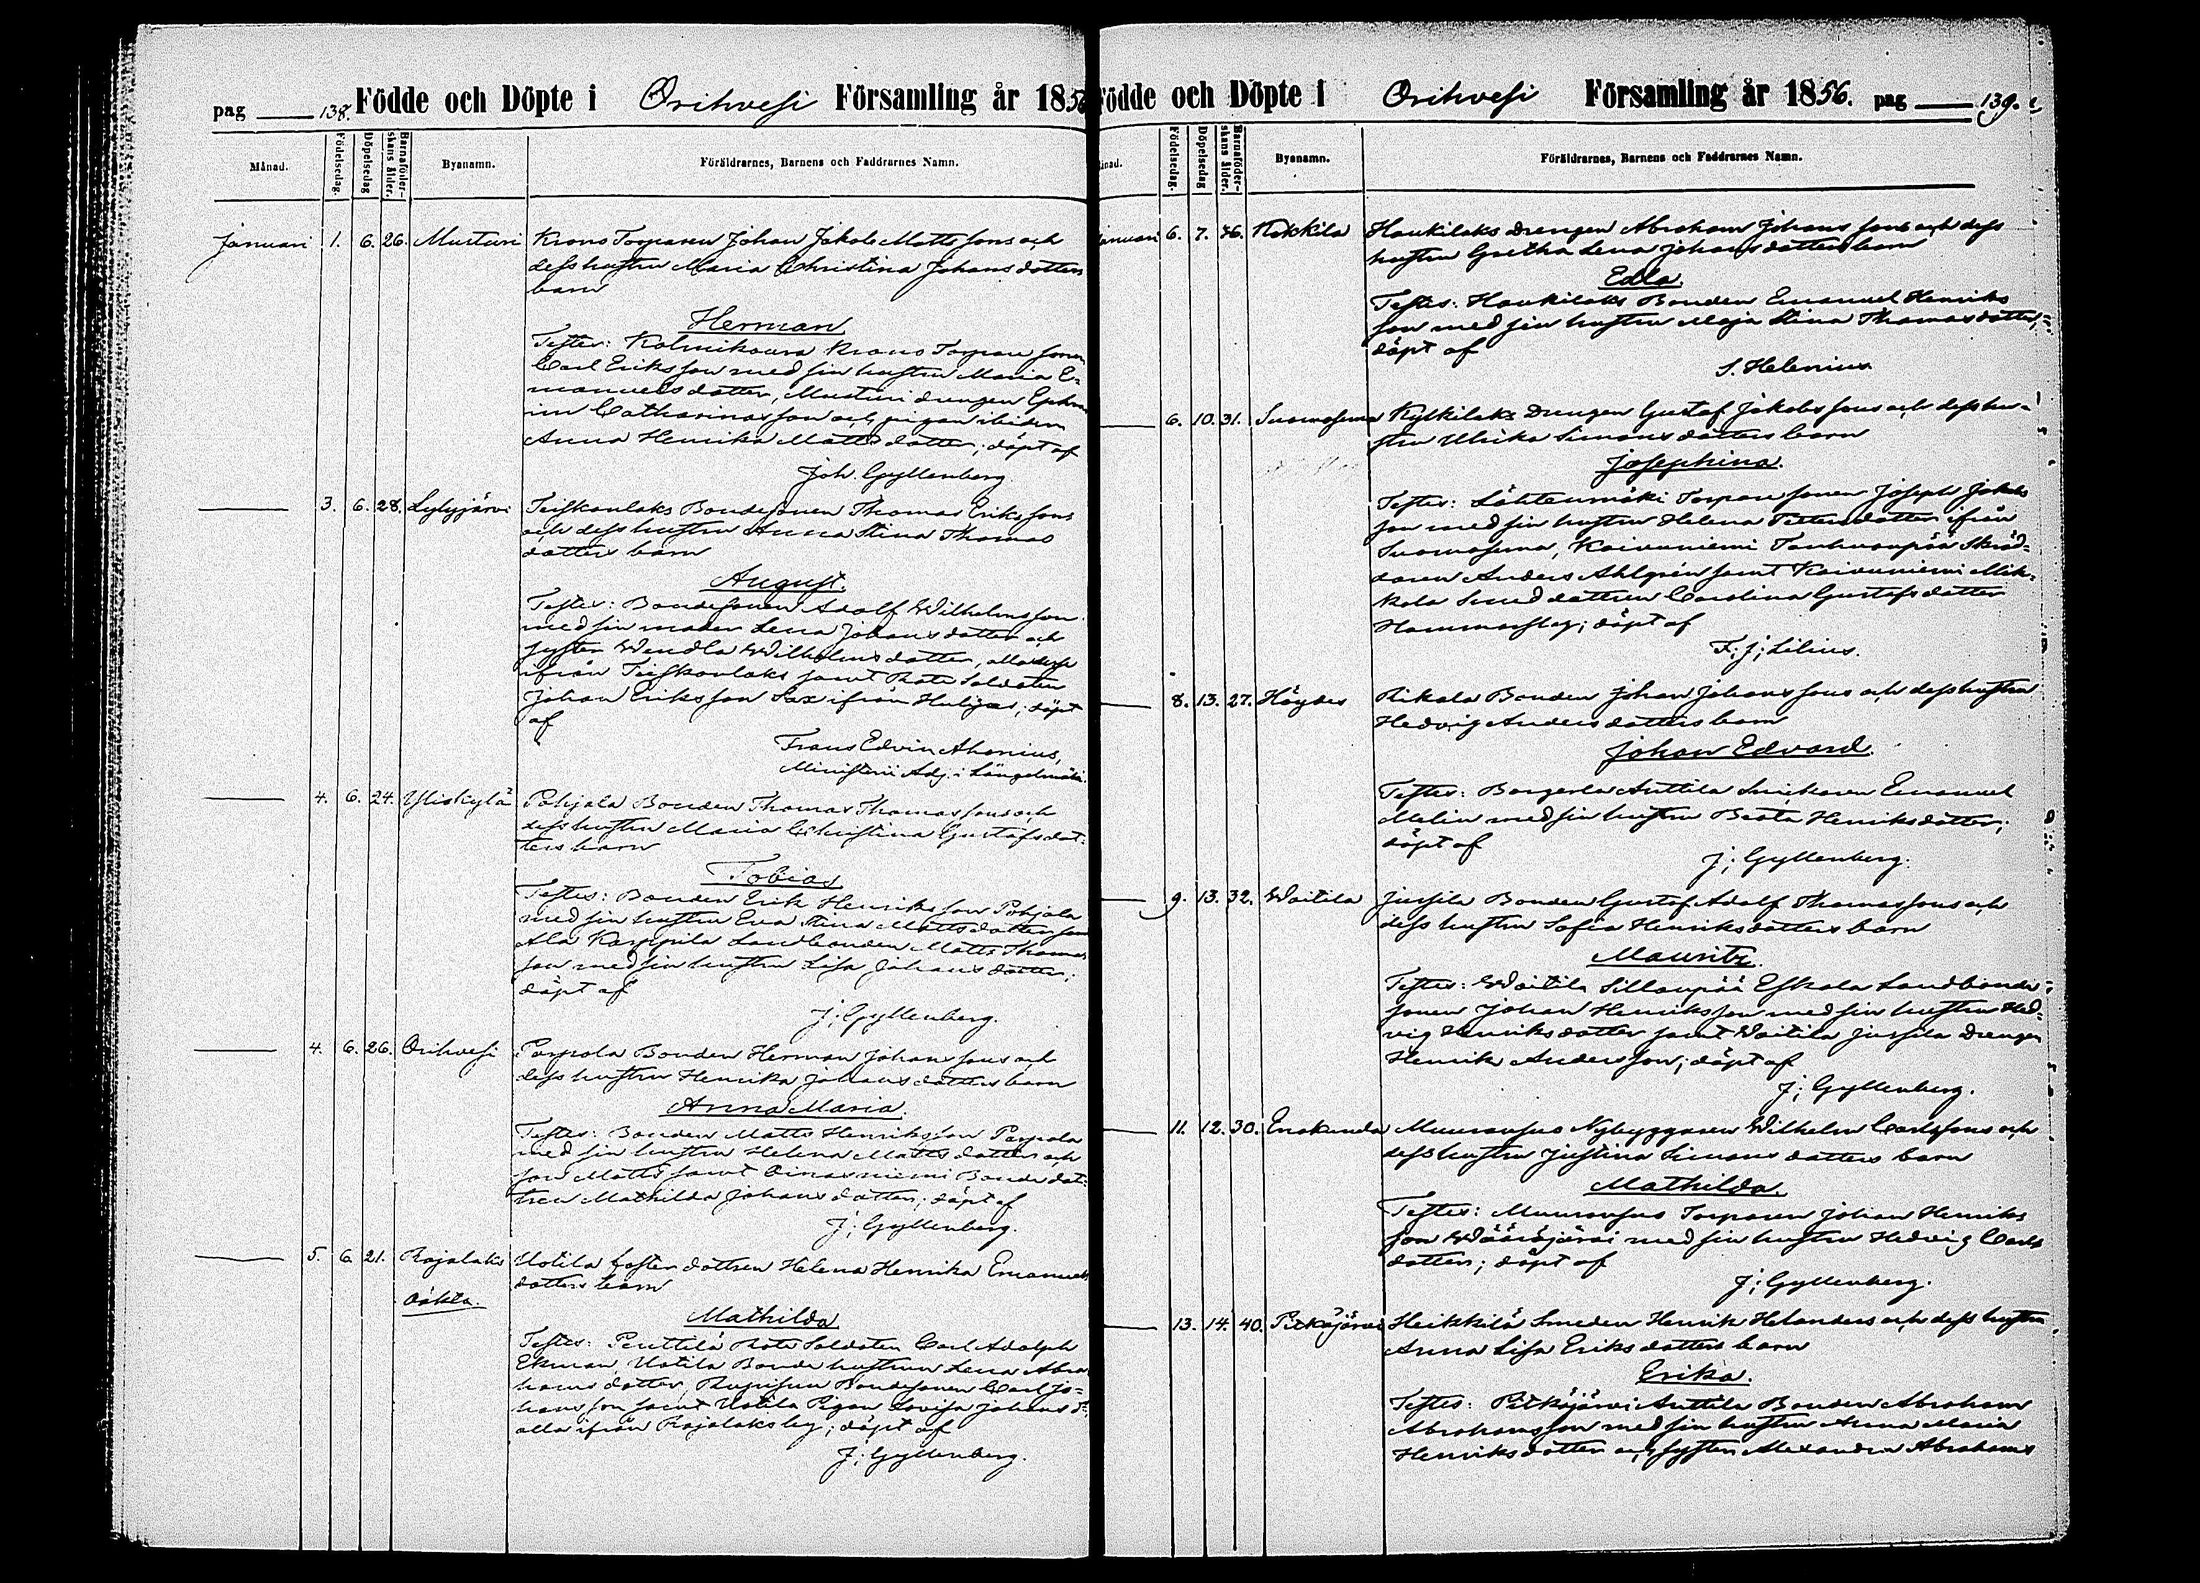 pag 138. Födde och Döpte i Orihvesi Församling år 1856
Månad. Födelsedag. Döpelsedag Barnaföderskans ålder. Byanamn. Föräldrarnes, Barnens och Faddrarnes Namn.
Januari 1. 6. 26. Musturi Krono Torparen Johan Jakob Matts sons och
dess hustru Maria Christina Johans dotters
barn
Herman
Testes: Kolmikoura Krono Torpare sonen
Carl Eriksson med sin hustru Maria E-
manuels dotter, Musturi drengen Ephra
im Catharinas son och pigan ibidem
Anna Henrika Matts dotter; döpt af
Joh. Gyllenberg.
3. 6. 28. Lylyjärvi Teiskonlaks Bondesonen Thomas Eriks sons
och dess hustru Anna Stina Thomas
dotters barn
August.
Testes: Bondesonen Adolf Wilhelmsson
med sin moder Lena Johans dotter och
syster Wendla Wilhelms dotter, alla desse
ifrån Teiskonlaks samt Rote Soldaten
Johan Eriksson Sax ifrån ; döpt
af
Frans Edvin Ahonius,
Ministerii Adj. i Längelmäki.
4. 6. 24. Yliskylä Pohjala Bonden Thomas Thomas sons och
dess hustru Maria Christina Gustafs dot-
ters barn
Tobias
Testes: Bonden Erik Henriks son Pohjala
med sin hustru Eva Stina Matts dotter samt
Ala Karppila Landbonden Matts Thomas
son med sin hustru Lisa Johans dotter;
döpt af
J; Gyllenberg.
4. 6. 26. Orihvesi Parpola Bonden Herman Johans sons och
dess hustru Henrika Johans dotters barn
Anna Maria.
Testes: Bonden Matts Henriksson Parpola
med sin hustru Helena Matts dotter och
son Matts samt Oinasniemi Bonde dot-
tren Mathilda Johans dotter; döpt af
J; Gyllenberg.
5. 6 21. Rajalaks Uotila foster dottren Helena Henrika Emanuels
oäkta. dotters barn
Mathilda
Testes: Penttilä Rote Soldaten Carl Adolph
Ekman, Uotila Bonde hustrun Lena Abra
hams dotter, Bondesonen Carl Jo-
hans son samt Uotila Pigan Lovisa Johans dr
alla ifrån Rajalaks by; döpt af
J; Gyllenberg.
Födde och Döpte i Orihvesi Församling år 1856. pag 139.
Födelsedag. Döpelsedag Barnaföderskans ålder. Byanamn. Föräldrarnes, Barnens och Faddrarnes Namn.
Januari 6. 7. 46. Kokkila Haukilaks Drengen Abraham Johans sons och dess
hustru Gretha Lena Johans dotters barn
Edla.
Testes: Haukilaks Bonden Emanuel Henriks
son med sin hustru Maja Stina Thomas dotter;
döpt af
S. Helenius
6. 10. 31. Suomasema Kyskilaks Drengen Gustaf Jakobs sons och dess hu-
stru Ulrika Simons dotters barn
Josephina.
Testes: Lähtenmäki Torpare sonen Joseph Jakobs
son med sin hustru Helena Petters dotter ifrån
Suomasema, Koivuniemi Tanhuanpää Skräd-
daren Anders Ahlgrén samt Koivuniemi Mik-
kola Smed dottren Carolina Gustafs dotter
Hammarslag; döpt af
F; J; Lilius.
8. 13. 27. Höydes Rikala Bonden Johan Johans sons och dess hustru
Hedvig Anders dotters barn
Johan Edvard.
Testes: Anttila Snickaren Emanuel
Malin med sin hustru Beata Henriks dotter;
döpt af
J; Gyllenberg.
9. 13. 32. Woitila Jussila Bonden Gustaf Adolf Thomas sons och
dess hustru Sofia Henriks dotters barn
Mauritz.
Testes: Woitila Sillanpää Eskola Landbonde-
sonen Johan Henriksson med sin hustru Hed-
vig Henriks dotter samt Woitila Jussila Drengen
Henrik Andersson; döpt af
J; Gyllenberg.
11. 12. 30. Enokunda Nybyggaren Wilhelm Carls sons och
dess hustru Justina Simons dotters barn
Mathilda.
Testes: Torparen Johan Henriks
son Wäärijärvi med sin hustru Hedvig Carls
dotter; döpt af
J; Gyllenberg.
13. 14. 40. Pitkäjärvi Heikkilä Smeden Henrik Helanders och dess hustru
Anna Lisa Eriks dotters barn
Erika.
Testes: Pitkäjärvi Anttila Bonden Abraham
Abrahamsson med sin hustru Anna Maria
Henriks dotter och syster Alexandra Abrahams